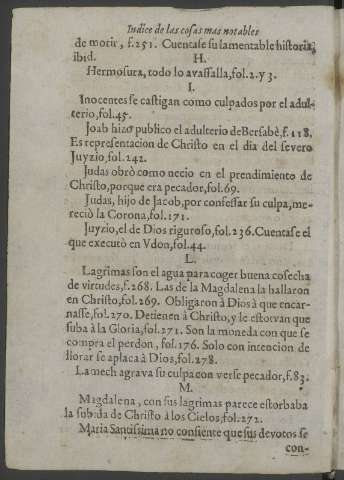 Indice de las cosas mas notables
de morir, f.251. Cuentase su lamentable historia,
ibid.
H.
Hermosura, todo lo avassalla, fol.2.y 3.
I.
Inocentes se castigan como culpados por el adul-
terio, fol.45.
Joab hizo publico el adulterio de Bersabè, f.118.
Es representacion de Christo en el dia del severo
Juyzio, fol.242.
Judas obrò como necio en el prendimiento de
Christo, porque era pecador, fol.69.
Judas, hijo de Jacob, por confessar su culpa, me-
reciò la Corona, fol.171.
Juyzio, el de Dios riguroso, fol.236. Cuentase el
que executò en Vdon, fol.44.
L.
Lagrimas son el agua para coger buena cosecha
de virtudes, f.268. Las de la Magdalena la hallaron
en Christo, fol.269. Obligaron à Dios à que encar-
nasse, fol.270. Detienen à Christo, y le estorvan que
suba à la Gloria, fol.271. Son la moneda con que se
compra el perdon, fol.176. Solo con intencion de
llorar se aplaca à Dios, fol.278.
Lamech agrava su culpa con verse pecador, f.83.
M.
Magdalena, con sus lagrimas parece estorbaba
la subida de Christo à los Cielos, fol.272.
Maria Santissima no consiente que sus devotos se
con-